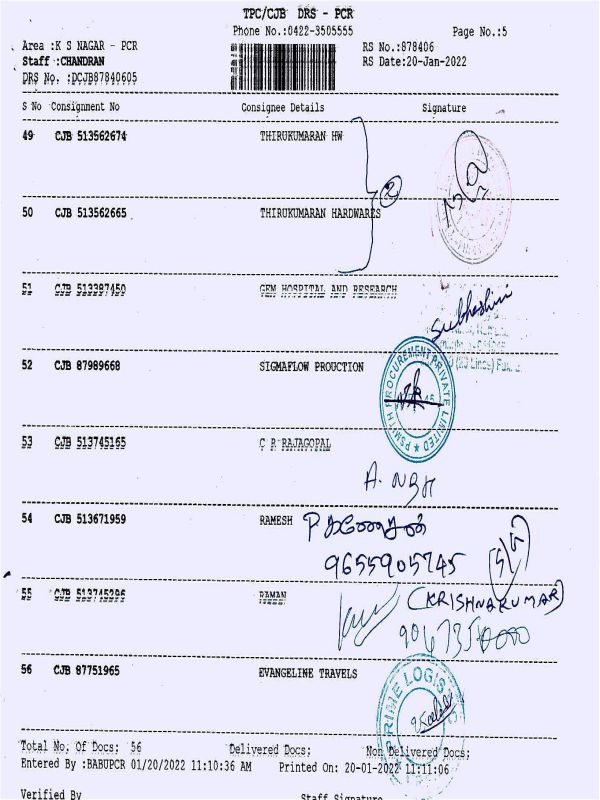 TPC/CJB DRS - PCR
Phone No.:0422-3505555 Page No.:5
Area :K S NAGAR - PCR RS No.:878406
Staff :CHANDRAN RS Date:20-Jan-2022
DRS No. :DCJB87840605
S No Consignment No Consignee Details Signature
49 CJB 513562674 THIRUKUMARAN HW
2
50 CJB 513562665 THIRUKUMARAN HARDWARES
51 CJB 513387450 GEM HOSPITAL AND RESEARCH
Subhashini
52 CJB 87989668 SIGMAFLOW PROUCTION
PSMITH PROCUREMENT PRIVATE LIMITED
53 CJB 513745165 C R RAJAGOPAL
54 CJB 513671959 RAMESH P கணேசன்
9655905745
55 CJB 513745296 RAMAN (KRISHNAKUMAR)
56 CJB 87751965 EVANGELINE TRAVELS
PRIME LOGIS
Total No. Of Docs: 56 Delivered Docs: Non Delivered Docs:
Entered By :BABUPCR 01/20/2022 11:10:36 AM Printed On: 20-01-2022 11:11:06
Verified By Staff Signature